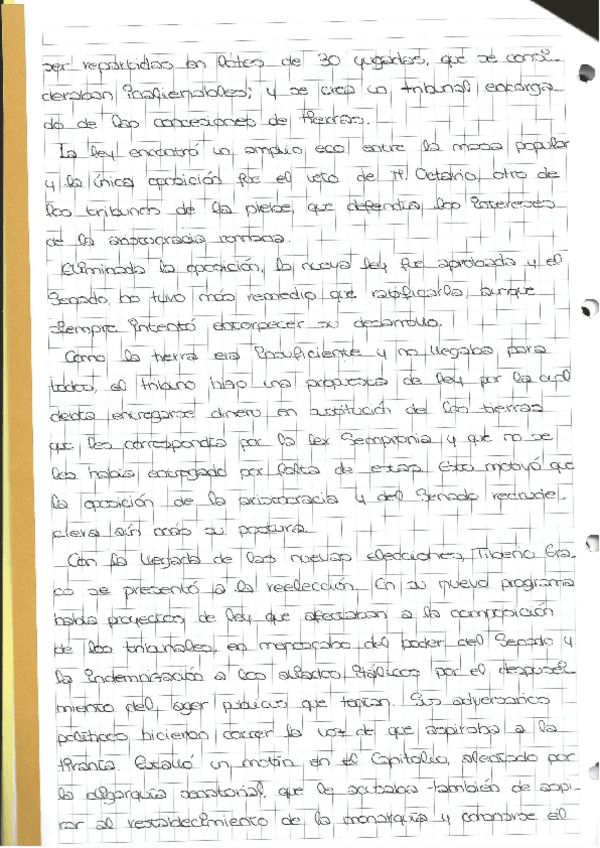 ser repartidas en lotes de 30 yugadas, que se consi-
deraban inalienables; y se creó un tribunal encarga-
do de las concesiones de tierras.
La ley encontró un amplio eco entre la masa popular
y la única oposición fue el veto de M Octavio, otro de
los tribunos de la plebe, que defendía los intereses
de la aristocracia romana.
Eliminada la oposición, la nueva ley fue aprobada y el
Senado, no tuvo más remedio que ratificarla, aunque
siempre intentó entorpecer su desarrollo.
Como la tierra era insuficiente y no llegaba para
todos, el tribuno hizo una propuesta de ley por la cual
debía entregarse dinero en sustitución de las tierras
que les correspondía por la lex Sempronia y que no se
les había entregado por falta de estas. Esto motivó que
la oposición de la aristocracia y del Senado recrude-
ciera aún más su postura.
Con la llegada de las nuevas elecciones, Tiberio Gra-
co se presentó a la reelección. En su nuevo programa
había proyectos de ley que afectaban a la composición
de los tribunales, en menoscabo del poder del Senado y
la indemnización a los aliados itálicos por el desposei-
miento del ager publicus que tenían. Sus adversarios
políticos hicieron correr la voz de que aspiraba a la
tiranía. Estalló un motín en el Capitolio, efectuado por
la oligarquía senatorial, que le acusaba también de aspi-
rar al restablecimiento de la monarquía y coronarse él